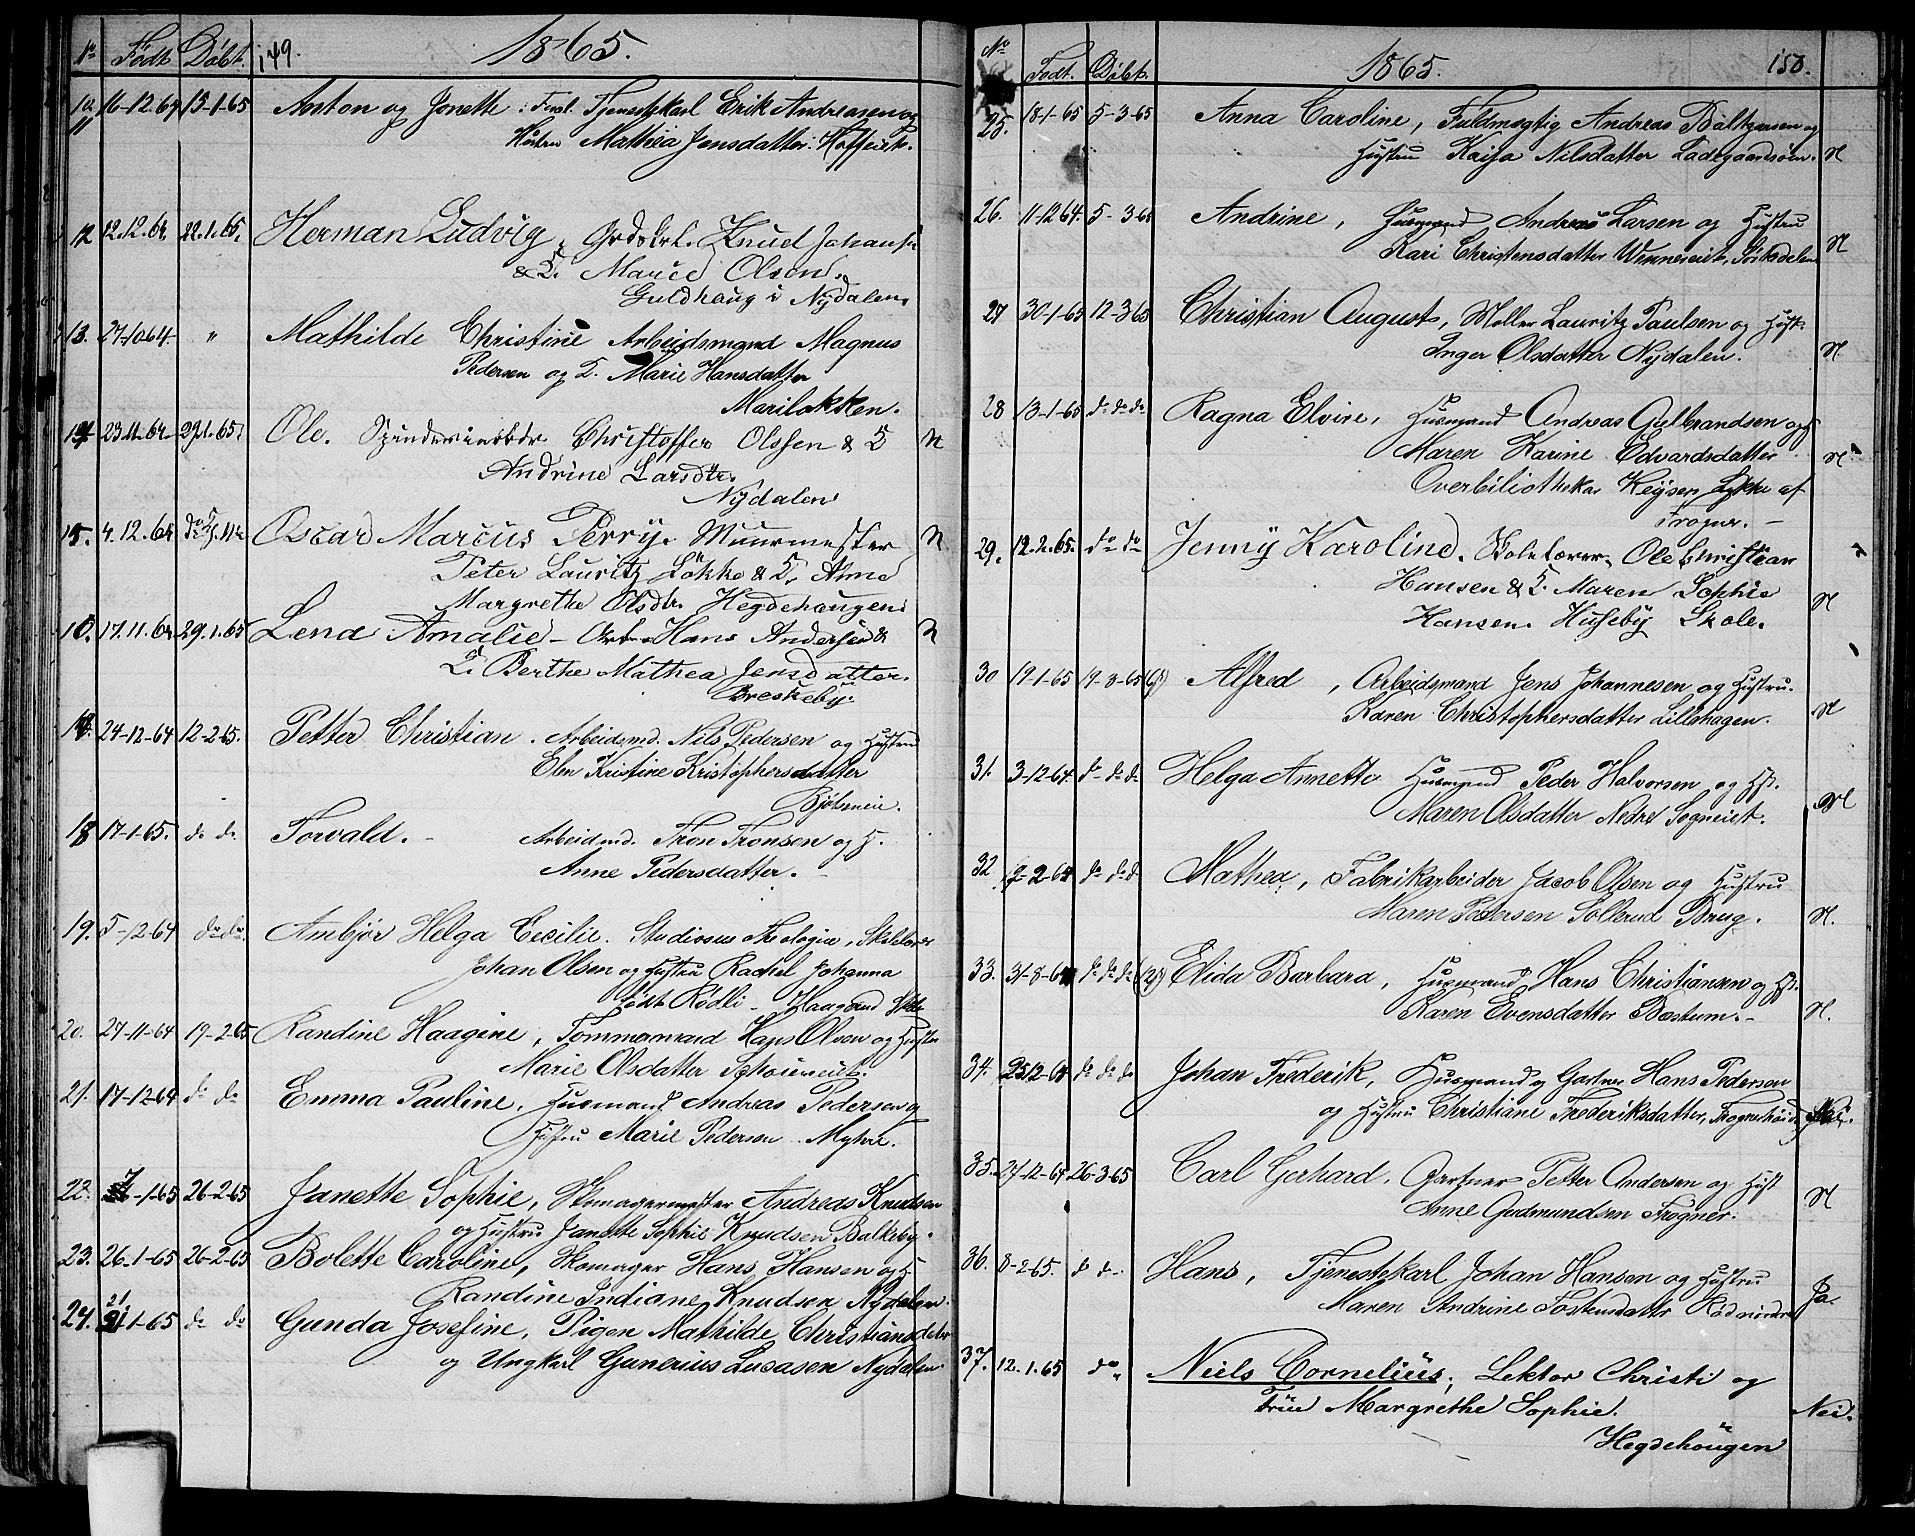 No Födt Döbt. 149. 1865.
10. 16-12-64 15-1-65 Anton og Jonette : Forl. Tjenestekarl Erik Andreasen og
11 Hustru Mathea Jensdatter: Hoffseie.
12 12.12.64. 22.1.65. Herman Ludvig, Grdskrl. Knud Johans
& H. Marie Olsen.
Guldhaug i Nydalen.
13. 27-10-64 " Mathilde Christine Arbeidsmand Magnus
Pedersen og H. Marie Hansdatter
Mariløkken.
14 23.11.64 29.1.65. Ole. Spinderiarbdr Christoffer Olssen & H N
Andrine Larsdtr.
Nydalen
15. 4.12.64 Oscar Marcus Perry. Muurmester N
Peter Lauritz Lökke & H. Anne
Margrethe Olsdtr. Hegdehaugen.
16. 17.11.64 29.1.65 Lena Amalie - Arb. Hans Andersen & N
H. Berthe Mathea Jensdatter.
Breskeby.
17. 24-12-64 12-2-65. Petter Christian. Arbeidsmd. Nils Pedersen og Hustru
Elen Kristine Kristophersdatter
18 17-1-65. do do Torvald. - Arbeidmd. Tron Tronsen og H.
Anne Pedersdatter.
19. 5-12-64 do do. Ambjør Helga Cecilie. Studiosus Theologiæ, Skolelærer
Johan Olsen og Hustru Rachel Johanna
födt Rödli - Haagaad Skole
20. 27-11-64 19-2-65 Randine Haagine, Tømmermand Hans Olsen og Hustru
Marie Olsdatter
21. 17-12-64 do do Emma Pauline, Husmand Andreas Pedersen og
Hustru Marie Pedersen Myhre.
22. 7-1-65 26-2-65 Janette Sophie, Skomagermester Andreas Knudsen
og Hustru Janette Sophie Knudsen Balkeby.
23. 26-1-65 26-2-65 Bolette Caroline, Skomager Hans Hansen og H
Randine Indiane Knudsen Nydalen.
24. 21 1-65 do do Gunda Josefine, Pigen Mathilde Christiansdatter
og Ungkarl Gunerius Lucasen Nydalen
No Födt. Döbt. 1865. 150.
25. 18-1-65 5-3-65 Anna Caroline, Fuldmægtig Andreas Baltzersen og
Hustru Kaisa Nilsdatter Ladegaardsöen. N
26. 11-12 64. 5-3-65 Andrine, Husmand Andreas Larsen og Hustru
Kari Christensdatter Wennereiet, Sörkedalen N
27 30-1-65 12-3-65 Christian August, Møller Lauritz Paulsen og Hust.
Inger Olsdatter Nydalen. N
28 13-1-65 do do do Ragna Elvire, Husmand Andreas Gulbrandsen og H
Maren Karine Edvardsdatter N
Overbiliothekar Keyser Lykke af
Frogner. -
29. 12.2.65. do do Jenny Karoline. Skolelærer Ole Christian
Hansen & H. Maren Sophie N
Hansen. Huseby Skole.
30 19-1-65 19-3-65 Alfred, Arbeidsmand Jens Johannesen og Hustru.
Karen Christophersdatter Lillehagen. N
31. 3-12-64. do do do Helga Annette Husmand Peder Halvorsen og Hst.
Maren Olsdatter Nedre Sogneiet. N
32 2-2-64 do do do Mathea, Fabrikarbeider Jacob Olsen og Hustru
Maren Pedersen Sollerud Brug. N.
33. 31-8-64 do do do Elida Barbara, Husmand Hans Christiansen og Hst.
Karen Evensdatter Bæstum. - N.
34. 25-12-64 do do do Johan Frederik, Husmand og Gartner Hans Pedersen
og Hustru Christiane Frederiksdatter, Nei.
35. 27-12-64 26-3-65 Carl Gerhard, Gartner Petter Andersen og Hust
Anne Gudmundsen Frogner. N
36. 8-2-65. do do Hans, Tjenestekarl Johan Hansen og Hustru
Maren Andrine Ja.
37. 12.1.65 do " Niels Cornelius; Lektor Christi og
Früe Margrethe Sophie. Nei.
Hegdehougen